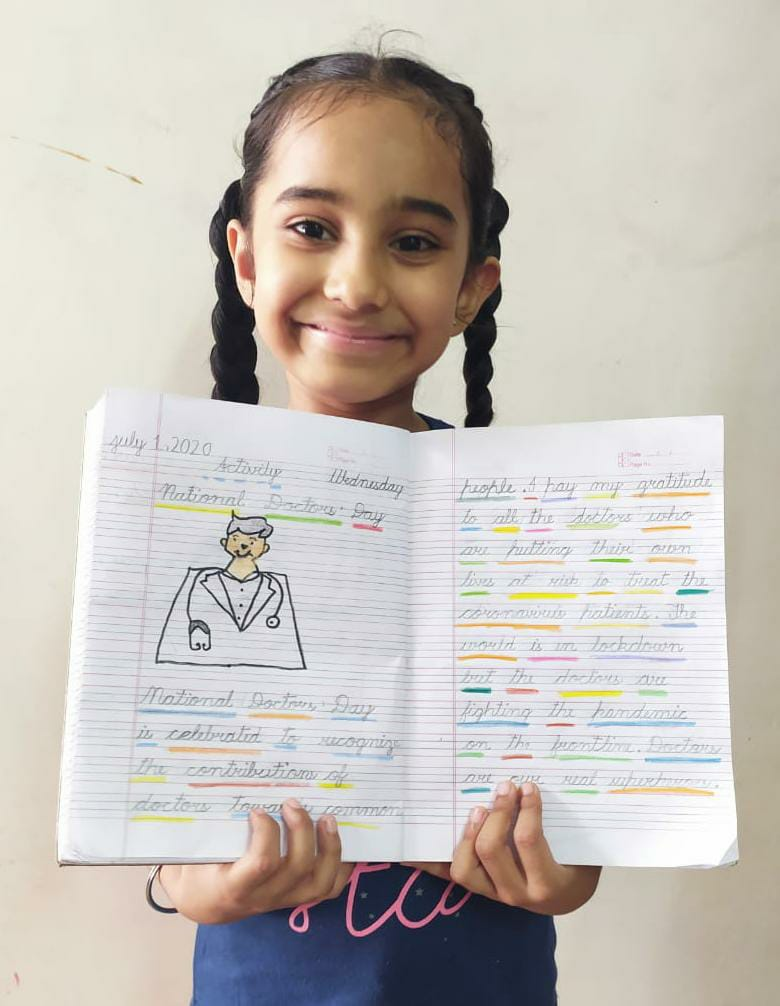 July 1, 2020
Activity Wednesday
National Doctors' Day
National Doctors' Day
is celebrated to recognize
the contribution of
doctors towards common
Date
Page No.
people. I pay my gratitude
to all the doctors who
are putting their own
lives at risk to treat the
coronavirus patients. The
world is in lockdown
but the doctors are
fighting the pandemic
on the frontline. Doctors
are our real superheroes.